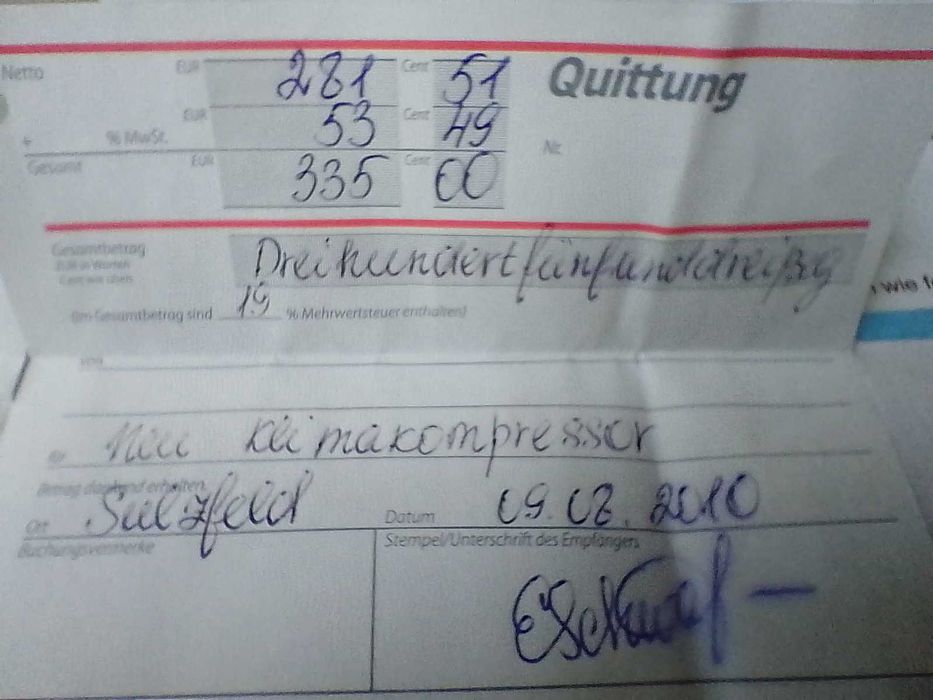 Netto EUR 281 Cent 51 Quittung
+ % MwSt. EUR 53 Cent 49 Nr.
Gesamt EUR 335 Cent 00
Gesamtbetrag Dreihundertfünfunddreißig
EUR in Worten
Cent wie oben
(Im Gesamtbetrag sind 19 % Mehrwertsteuer enthalten)
von
Neu Klimakompressor
Betrag dankend erhalten.
Ort Sulzfeld Datum 09.08.2010
Buchungsvermerke Stempel/Unterschrift des Empfängers